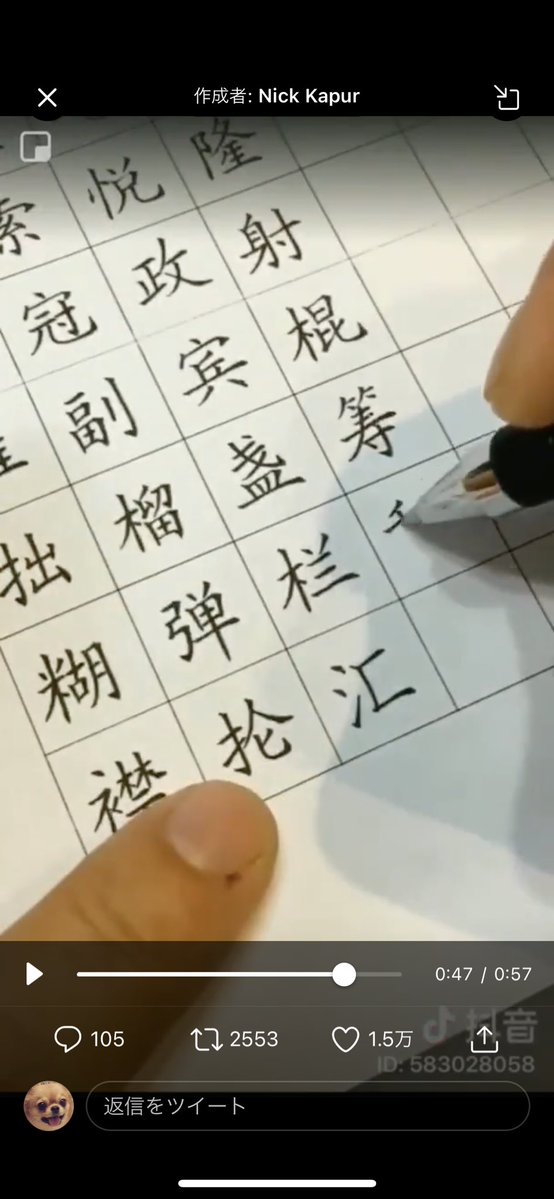 作成者: Nick Kapur
索 悦 隆
冠 政 射
副 宾 棍
拙 榴 盏 筹
糊 弹 栏
襟 抡 汇
0:47 / 0:57
抖音
ID: 583028058
105 2553 1.5万
返信をツイート